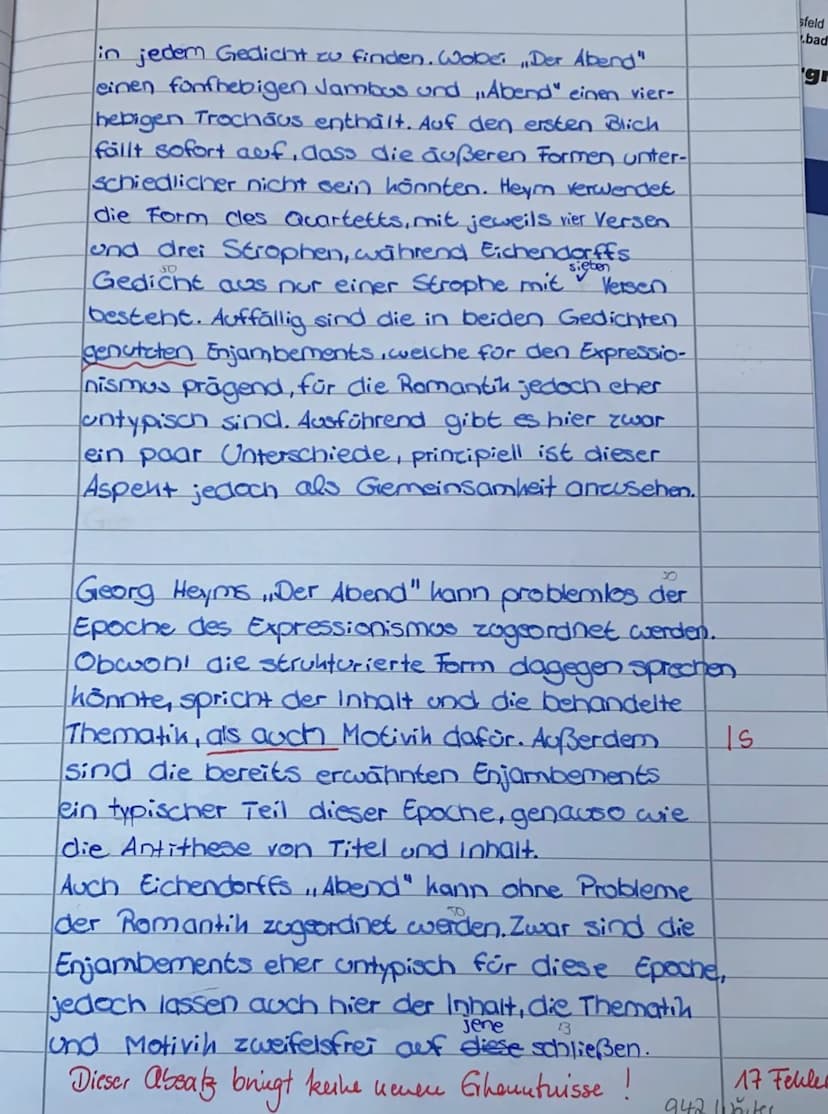 sfeld
.bad
gr
in jedem Gedicht zu finden. Wobei „Der Abend"
einen fünfhebigen Jambus und „Abend" einen vier-
hebigen Trochäus enthält. Auf den ersten Blick
fällt sofort auf, dass die äußeren Formen unter-
schiedlicher nicht sein könnten. Heym verwendet
die Form des Quartetts, mit jeweils vier Versen
und drei Strophen, während Eichendorffs
sieben
50
Gedicht aus nur einer Strophe mit ✓ Versen
besteht. Auffällig sind die in beiden Gedichten
genutzten Enjambements, welche für den Expressio-
nismus prägend, für die Romantik jedoch eher
untypisch sind. Ausführend gibt es hier zwar
ein paar Unterschiede, prinzipiell ist dieser
Aspekt jedoch als Gemeinsamheit anzusehen.
50
Georg Heyms „Der Abend" kann problemlos der
Epoche des Expressionismus zugeordnet werden.
Obwohl die strukturierte Form dagegen sprechen
könnte, spricht der Inhalt und die behandelte
Thematik, als auch Motivik dafür. Außerdem
IS
sind die bereits erwähnten Enjambements
ein typischer Teil dieser Epoche, genauso wie
die Antithese von Titel und Inhalt.
Auch Eichendorffs „Abend" kann ohne Probleme
50
der Romantik zugeordnet werden. Zwar sind die
Enjambements eher untypisch für diese Epoche,
jedoch lassen auch hier der Inhalt, die Thematik
jene
13
und Motivik zweifelsfrei auf diese schließen.
Dieser Absatz bringt keine neuen Erkenntnisse !
17 Fehler
942 Wörter